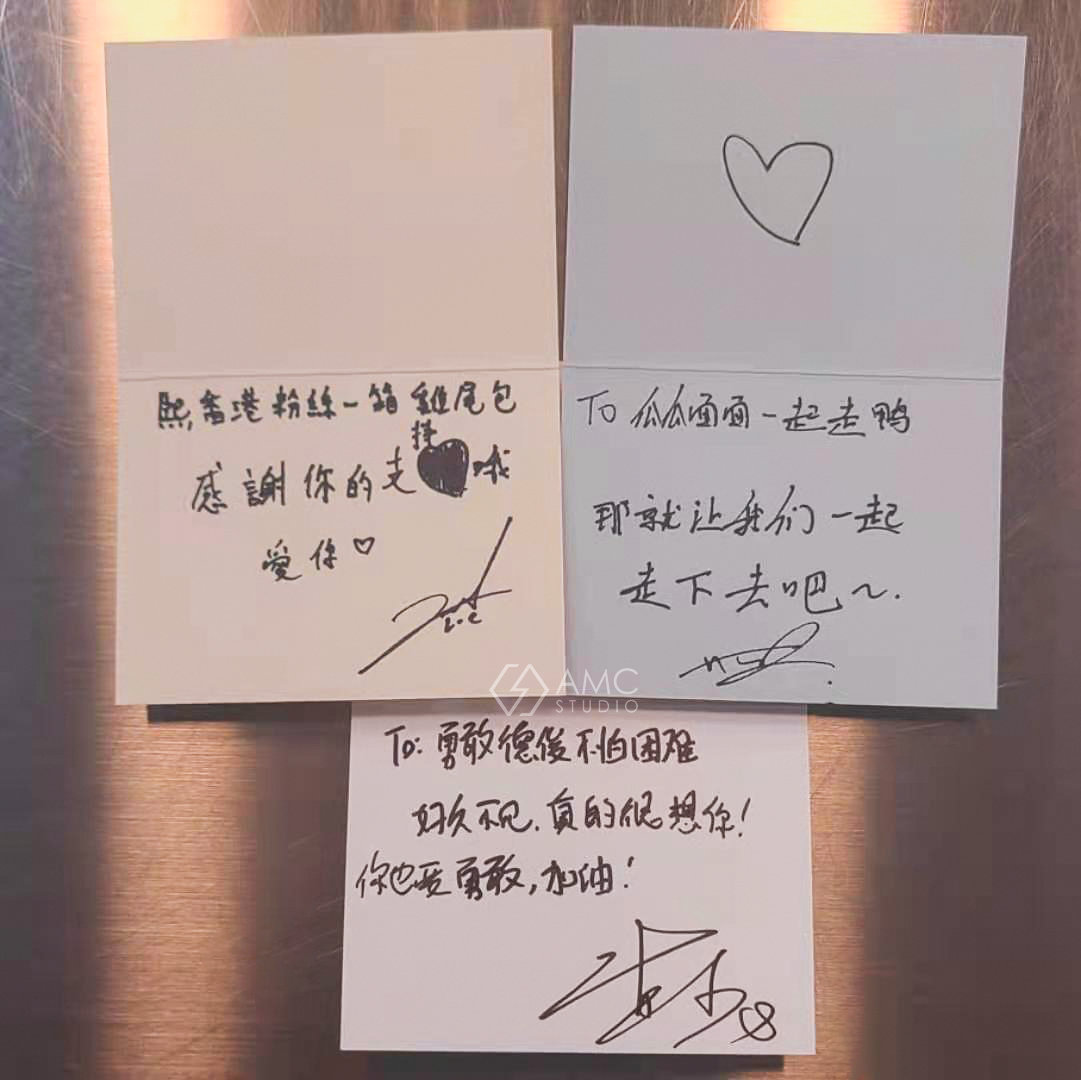 熙香港粉絲一箱雞尾包
感謝你的支持哦
愛你♡
To 瓜瓜面面一起走鸭
那就让我们一起
走下去吧～.
AMC
STUDIO
To: 勇敢德俊不怕困难
好久不见,真的很想你!
你也要勇敢,加油!